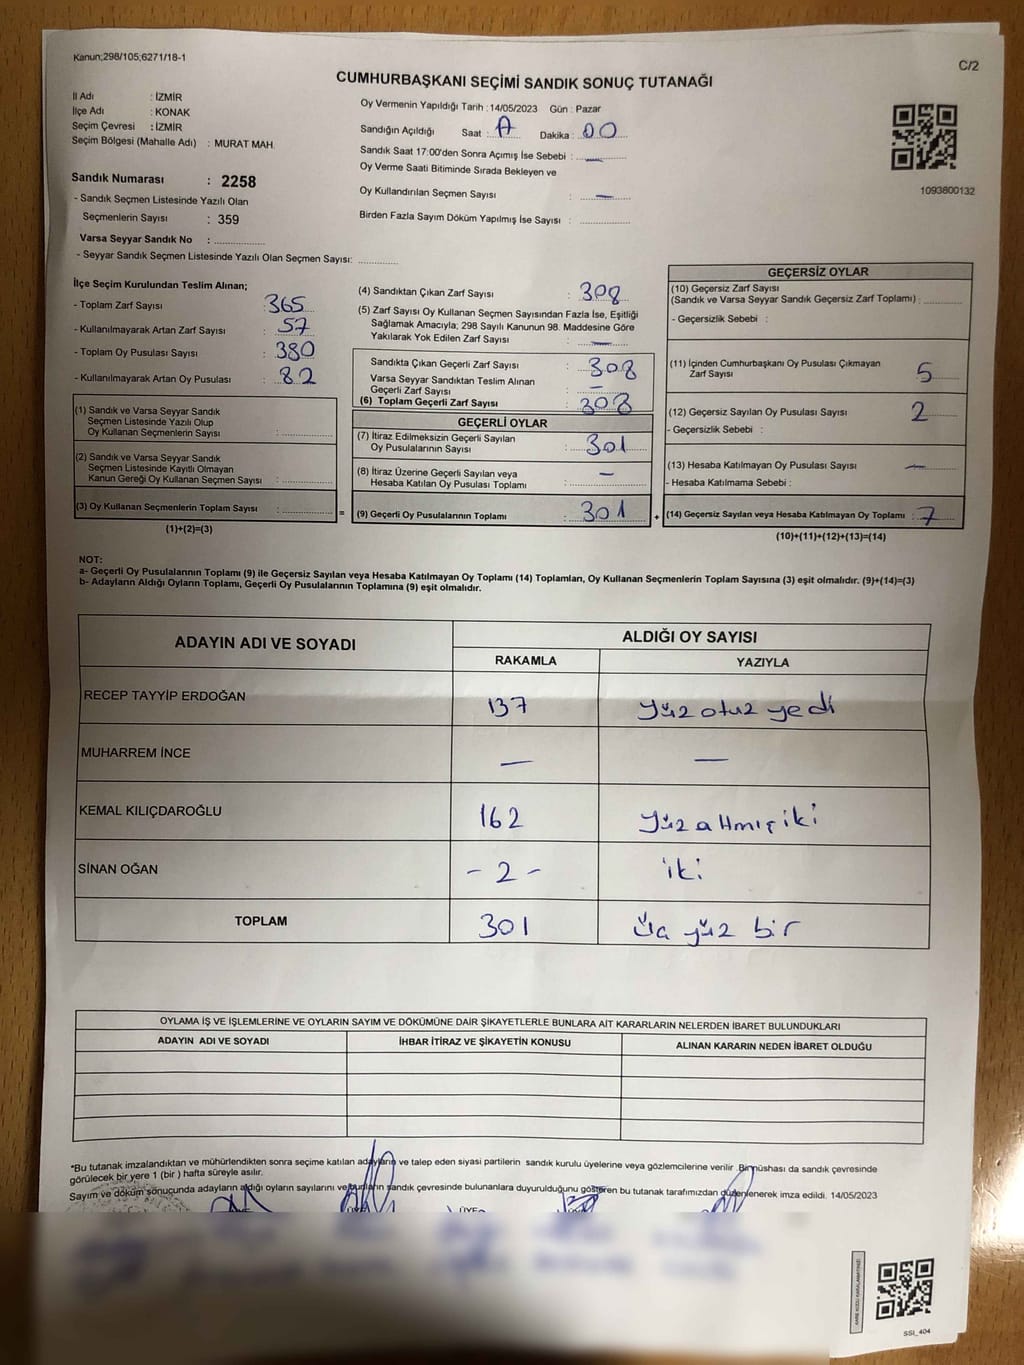 Kanun;298/105;6271/18-1
C/2
CUMHURBAŞKANI SEÇİMİ SANDIK SONUÇ TUTANAĞI
İl Adı : İZMİR
İlçe Adı : KONAK
Seçim Çevresi : İZMİR
Seçim Bölgesi (Mahalle Adı) : MURAT MAH.
Sandık Numarası : 2258
- Sandık Seçmen Listesinde Yazılı Olan
Seçmenlerin Sayısı : 359
Varsa Seyyar Sandık No :
- Seyyar Sandık Seçmen Listesinde Yazılı Olan Seçmen Sayısı:
Oy Vermenin Yapıldığı Tarih : 14/05/2023 Gün : Pazar
Sandığın Açıldığı Saat : Dakika : 00
Sandık Saat 17:00'den Sonra Açımış İse Sebebi : —
Oy Verme Saati Bitiminde Sırada Bekleyen ve
Oy Kullandırılan Seçmen Sayısı : —
Birden Fazla Sayım Döküm Yapılmış İse Sayısı :
1093800132
İlçe Seçim Kurulundan Teslim Alınan;
- Toplam Zarf Sayısı : 365
- Kullanılmayarak Artan Zarf Sayısı : 57
- Toplam Oy Pusulası Sayısı : 380
- Kullanılmayarak Artan Oy Pusulası : 82
(1) Sandık ve Varsa Seyyar Sandık
Seçmen Listesinde Yazılı Olup
Oy Kullanan Seçmenlerin Sayısı :
(2) Sandık ve Varsa Seyyar Sandık
Seçmen Listesinde Kayıtlı Olmayan
Kanun Gereği Oy Kullanan Seçmen Sayısı :
(3) Oy Kullanan Seçmenlerin Toplam Sayısı :
(1)+(2)=(3)
(4) Sandıktan Çıkan Zarf Sayısı : 308
(5) Zarf Sayısı Oy Kullanan Seçmen Sayısından Fazla İse, Eşitliği
Sağlamak Amacıyla; 298 Sayılı Kanunun 98. Maddesine Göre
Yakılarak Yok Edilen Zarf Sayısı : —
Sandıkta Çıkan Geçerli Zarf Sayısı : 308
Varsa Seyyar Sandıktan Teslim Alınan
Geçerli Zarf Sayısı : —
(6) Toplam Geçerli Zarf Sayısı : 308
GEÇERLİ OYLAR
(7) İtiraz Edilmeksizin Geçerli Sayılan
Oy Pusulalarının Sayısı : 301
(8) İtiraz Üzerine Geçerli Sayılan veya
Hesaba Katılan Oy Pusulası Toplamı : —
= (9) Geçerli Oy Pusulalarının Toplamı : 301 +
GEÇERSİZ OYLAR
(10) Geçersiz Zarf Sayısı
(Sandık ve Varsa Seyyar Sandık Geçersiz Zarf Toplamı) :
- Geçersizlik Sebebi :
(11) İçinden Cumhurbaşkanı Oy Pusulası Çıkmayan
Zarf Sayısı : 5
(12) Geçersiz Sayılan Oy Pusulası Sayısı : 2
- Geçersizlik Sebebi :
(13) Hesaba Katılmayan Oy Pusulası Sayısı : —
- Hesaba Katılmama Sebebi :
(14) Geçersiz Sayılan veya Hesaba Katılmayan Oy Toplamı : 7
(10)+(11)+(12)+(13)=(14)
NOT:
a- Geçerli Oy Pusulalarının Toplamı (9) ile Geçersiz Sayılan veya Hesaba Katılmayan Oy Toplamı (14) Toplamları, Oy Kullanan Seçmenlerin Toplam Sayısına (3) eşit olmalıdır. (9)+(14)=(3)
b- Adayların Aldığı Oyların Toplamı, Geçerli Oy Pusulalarının Toplamına (9) eşit olmalıdır.
ADAYIN ADI VE SOYADI ALDIĞI OY SAYISI
RAKAMLA YAZIYLA
RECEP TAYYİP ERDOĞAN 137 yüz otuz yedi
MUHARREM İNCE — —
KEMAL KILIÇDAROĞLU 162 yüz altmış iki
SİNAN OĞAN - 2 - iki
TOPLAM 301 üç yüz bir
OYLAMA İŞ VE İŞLEMLERİNE VE OYLARIN SAYIM VE DÖKÜMÜNE DAİR ŞİKAYETLERLE BUNLARA AİT KARARLARIN NELERDEN İBARET BULUNDUKLARI
ADAYIN ADI VE SOYADI İHBAR İTİRAZ VE ŞİKAYETİN KONUSU ALINAN KARARIN NEDEN İBARET OLDUĞU
*Bu tutanak imzalandıktan ve mühürlendikten sonra seçime katılan adayların ve talep eden siyasi partilerin sandık kurulu üyelerine veya gözlemcilerine verilir. Bir nüshası da sandık çevresinde
görülecek bir yere 1 (bir ) hafta süreyle asılır.
Sayım ve döküm sonucunda adayların aldığı oyların sayılarını ve bunların sandık çevresinde bulunanlara duyurulduğunu gösteren bu tutanak tarafımızdan düzenlenerek imza edildi. 14/05/2023
ÜYE
SSI_404